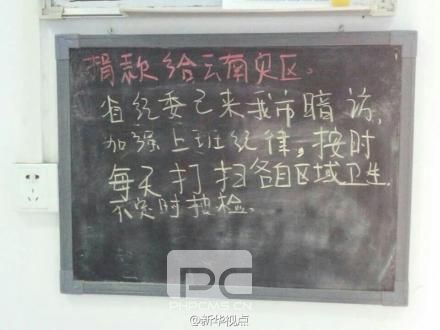 捐款给云南灾区。
省纪委已来我市暗访,
加强上班纪律,按时
每天打扫各自区域卫生.
不定时抽检。
PC
PHPCMS.CN
@新华视点